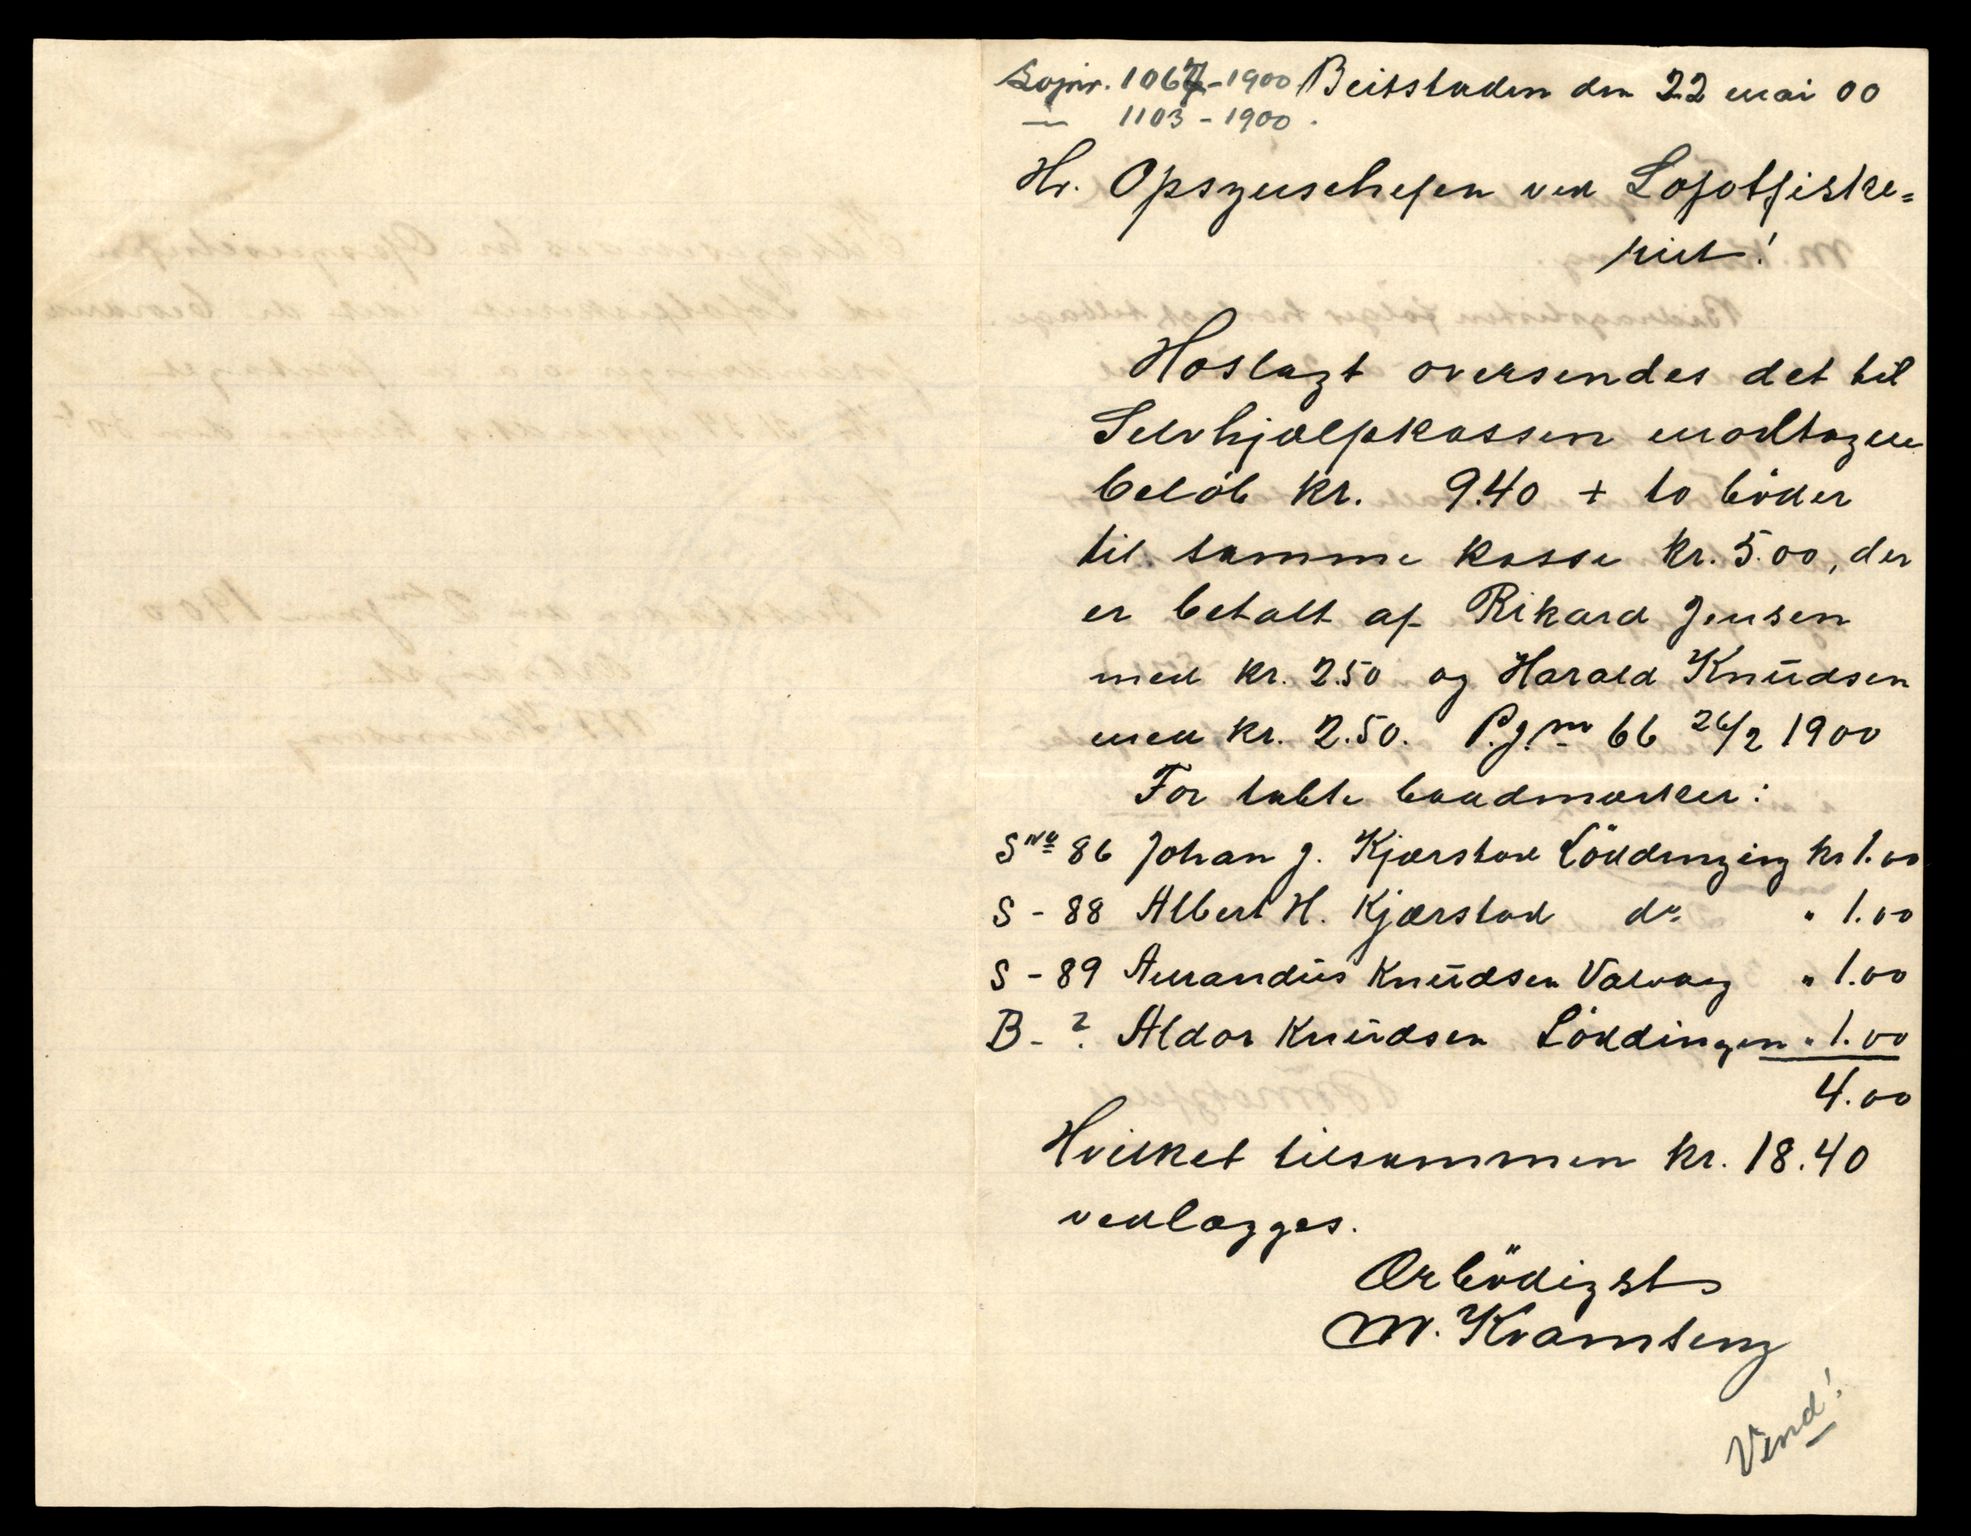 Lojnr. 1067-1900 Beitstaden den 22 mai 00
— 1103 - 1900.
Hr. Opsynschefen ved Lofotfiske=
riet!
Hoslagt oversendes det til
Selvhjælpkassen modtagne
beløb kr. 9.40 + to bøder
til samme kasse kr. 5.00, der
er betalt af Rikard Jensen
med kr. 2.50 og Harald Knudsen
med kr. 2.50. P.j. nr 66 26/2 1900
For tabte baadmærker:
S No 86 Johan J. Kjærstad Löddingen kr 1.00
S - 88 Albert H. Kjærstad do. " 1.00
S - 89 Amandus Knudsen Valvaag " 1.00
B - ? Aldor Knudsen Löddingen " 1.00
4.00
Hvilket tilsammen kr. 18.40
vedlægges.
Ærbödigst
M. Kvamseng
Vend!